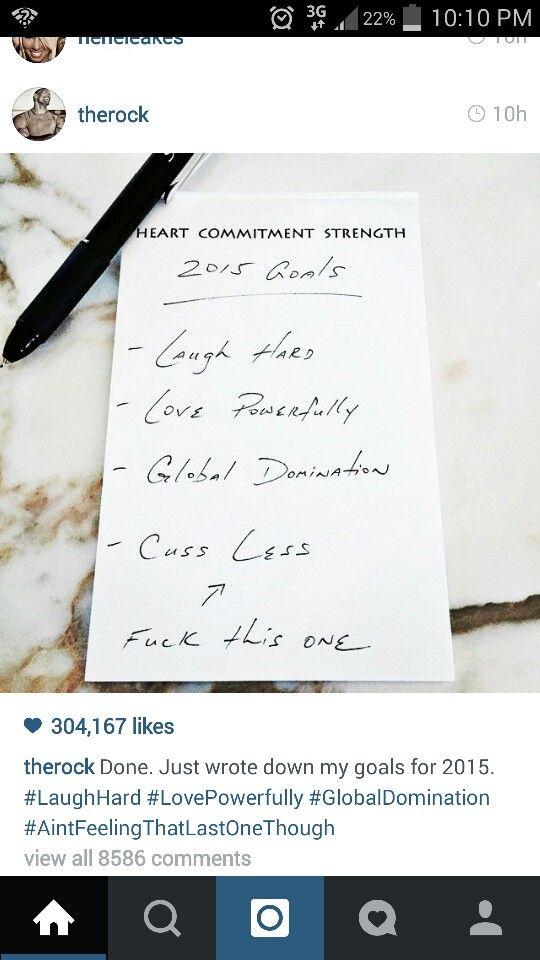 3G 22% 10:10 PM
neneleakes 10h
therock 10h
HEART COMMITMENT STRENGTH
2015 Goals
- Laugh Hard
- Love Powerfully
- Global Domination
- Cuss Less
Fuck this one
304,167 likes
therock Done. Just wrote down my goals for 2015.
#LaughHard #LovePowerfully #GlobalDomination
#AintFeelingThatLastOneThough
view all 8586 comments